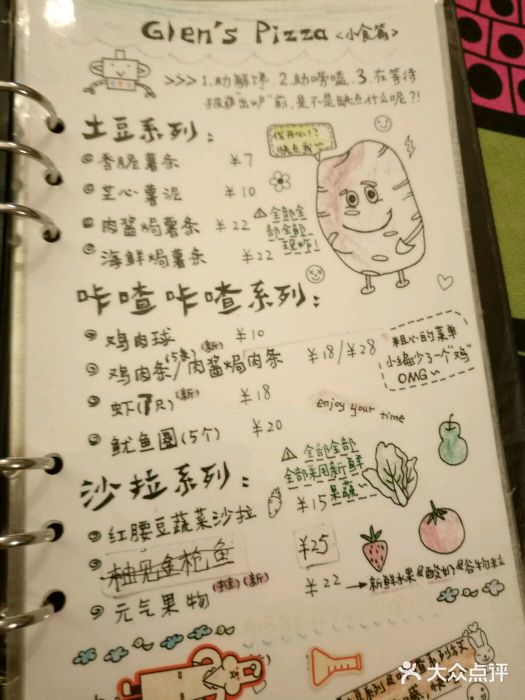 Glen's Pizza <小食篇>
>>> 1.助解馋. 2.助唠嗑. 3.在等待
披萨"出炉"前,是不是缺点什么呢?!
土豆系列:
香脆薯条 ¥7
芝心薯泥 ¥10
肉酱焗薯条 ¥22
海鲜焗薯条 ¥22
全部全
部全部
现炸!
快点我~
咔喳咔喳系列:
鸡肉球 ¥10
鸡肉条(5条)(新)/肉酱焗肉条 ¥18/¥28
虾(7只)(新) ¥18
鱿鱼圈(5个) ¥20
粗心的菜单
小编少了一个"鸡"
OMG~
enjoy your time
全部全部
全部采用新鲜
果蔬~
沙拉系列:
红腰豆蔬菜沙拉 ¥15
¥25
元气果物(推)(新) ¥22 → 新鲜水果@酸奶@谷物粒
大众点评